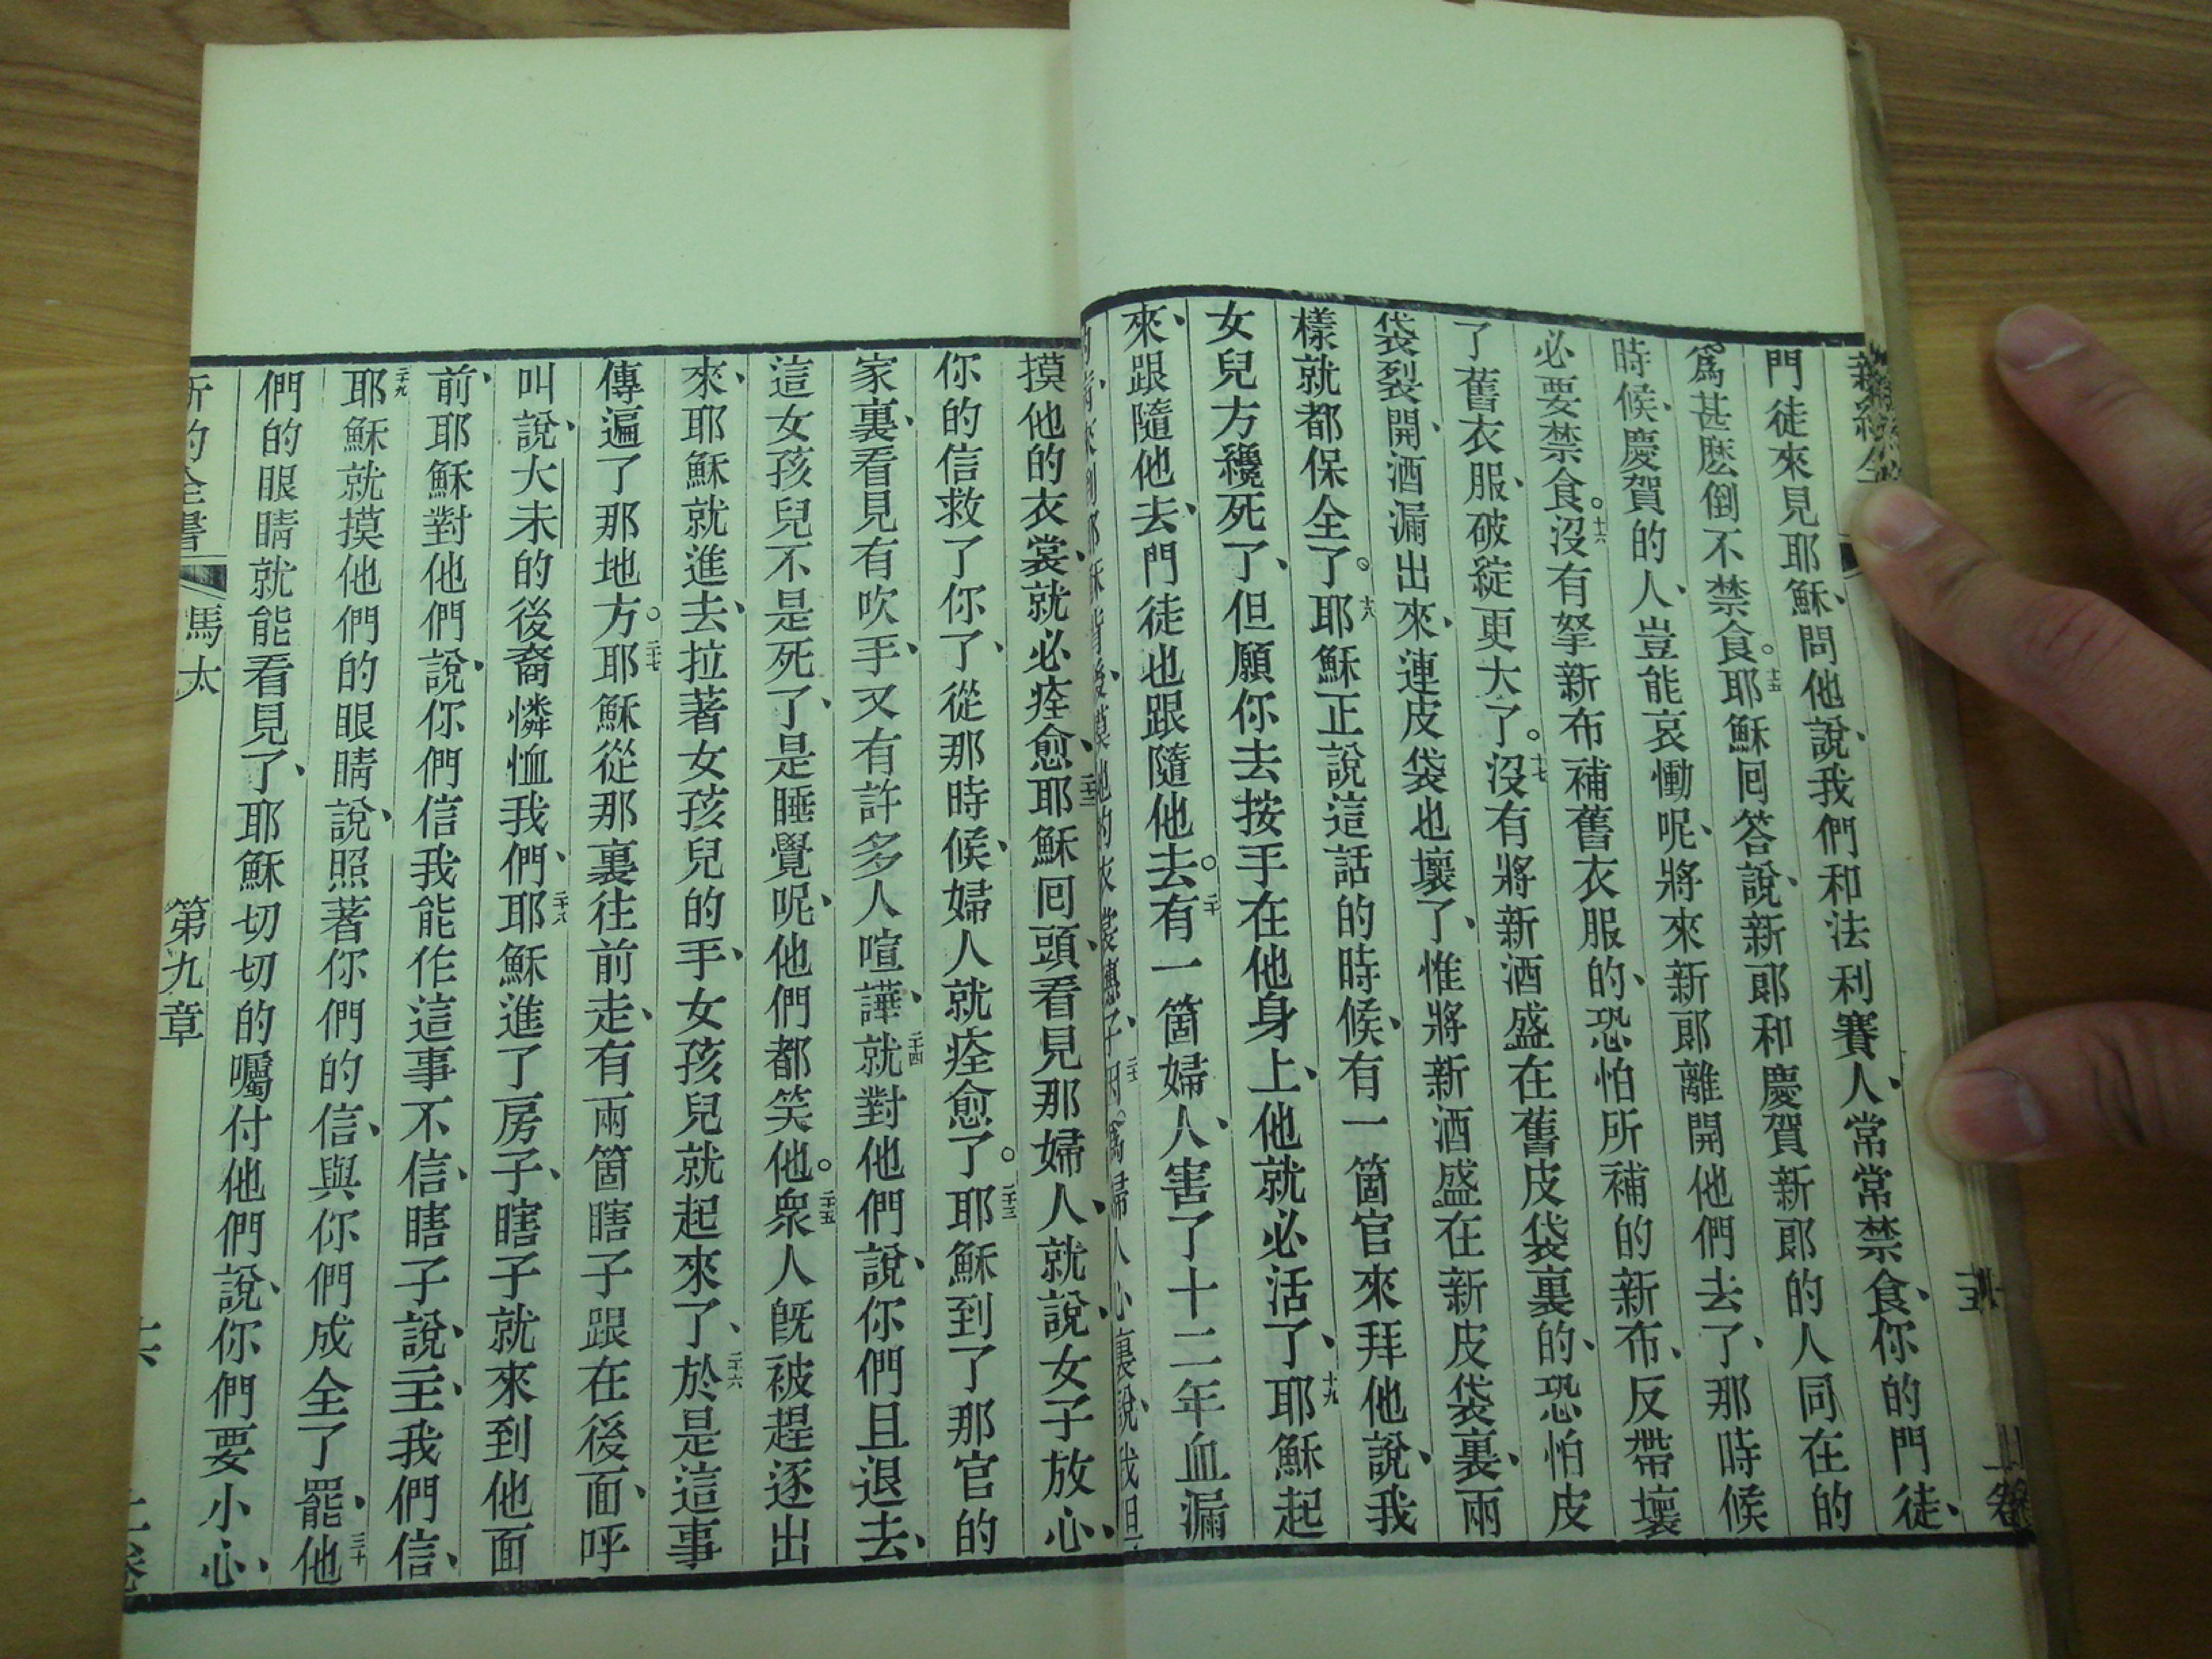 門徒來見耶穌、問他說、我們和法利賽人、常常禁食、你的門徒、
爲甚麽倒不禁食。十五耶穌囘答說、新郎和慶賀新郎的人同在的
時候、慶賀的人、豈能哀慟呢、將來新郎離開他們去了、那時候
必要禁食。十六沒有拏新布補舊衣服的、恐怕所補的新布、反帶壞
了舊衣服、破綻更大了。十七沒有將新酒盛在舊皮袋裏的、恐怕皮
袋裂開、酒漏出來、連皮袋也壞了、惟將新酒盛在新皮袋裏、兩
樣就都保全了。十八耶穌正說這話的時候、有一箇官來拜他說、我
女兒方纔死了、但願你去按手在他身上、他就必活了、十九耶穌起
來、跟隨他去、門徒也跟隨他去。二十有一箇婦人、害了十二年血漏
摸他的衣裳、就必痊愈、二十二耶穌囘頭、看見那婦人、就說、女子放心、
你的信救了你了、從那時候、婦人就痊愈了。二十三耶穌到了那官的
家裏、看見有吹手、又有許多人喧譁、二十四就對他們說、你們且退去、
這女孩兒不是死了、是睡覺呢、他們都笑他。二十五衆人旣被趕逐出
來、耶穌就進去、拉著女孩兒的手、女孩兒就起來了、二十六於是這事
傳遍了那地方。二十七耶穌從那裏往前走、有兩箇瞎子跟在後面、呼
叫說、大未的後裔憐恤我們、二十八耶穌進了房子、瞎子就來到他面
前、耶穌對他們說、你們信我能作這事不信、瞎子說、主、我們信、
二十九耶穌就摸他們的眼睛、說、照著你們的信、與你們成全了罷、三十他
們的眼睛就能看見了、耶穌切切的囑付他們說、你們要小心、
新約全書 馬太 第九章